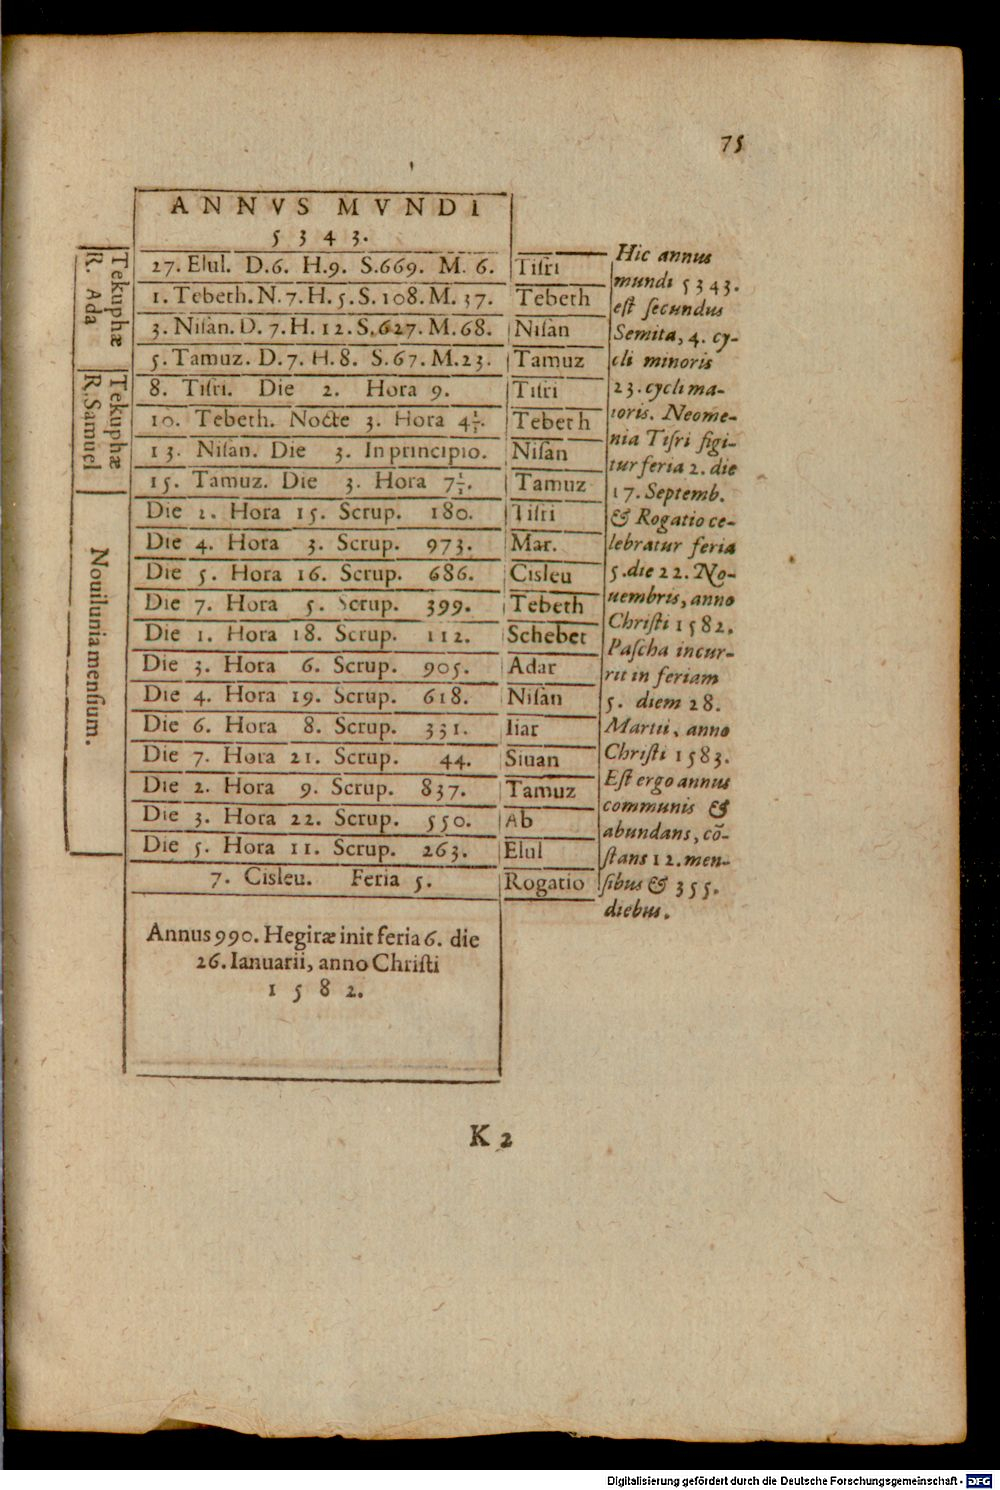 75
ANNVS MVNDI
5343.
Tekuphæ
R. Ada
27. Elul. D.6. H.9. S.669. M. 6. Tiſri
1. Tebeth. N. 7. H. 5. S. 108. M. 37. Tebeth
3. Niſan. D. 7. H. 12. S. 627. M. 68. Niſan
5. Tamuz. D. 7. H. 8. S. 67. M. 23. Tamuz
Tekuphæ
R. Samuel
8. Tiſri. Die 2. Hora 9. Tiſri
10. Tebeth. Nocte 3. Hora 4½. Tebeth
13. Niſan. Die 3. In principio. Niſan
15. Tamuz. Die 3. Hora 7½. Tamuz
Nouilunia menſium.
Die 2. Hora 15. Scrup. 180. Tiſri
Die 4. Hora 3. Scrup. 973. Mar.
Die 5. Hora 16. Scrup. 686. Cisleu
Die 7. Hora 5. Scrup. 399. Tebeth
Die 1. Hora 18. Scrup. 112. Schebet
Die 3. Hora 6. Scrup. 905. Adar
Die 4. Hora 19. Scrup. 618. Niſan
Die 6. Hora 8. Scrup. 331. Iiar
Die 7. Hora 21. Scrup. 44. Siuan
Die 2. Hora 9. Scrup. 837. Tamuz
Die 3. Hora 22. Scrup. 550. Ab
Die 5. Hora 11. Scrup. 263. Elul
7. Cisleu. Feria 5. Rogatio
Annus 990. Hegiræ init feria 6. die
26. Ianuarii, anno Chriſti
1582.
Hic annus
mundi 5343.
eſt ſecundus
Semita, 4. cy-
cli minoris
23. cycli ma-
ioris. Neome-
nia Tiſri figi-
tur feria 2. die
17. Septemb.
& Rogatio ce-
lebratur feria
5. die 22. No-
uembris, anno
Chriſti 1582.
Paſcha incur-
rit in feriam
5. diem 28.
Martii, anno
Chriſti 1583.
Eſt ergo annus
communis &
abundans, cō-
ſtans 12. men-
ſibus & 355.
diebus.
K 2
Digitalisierung gefördert durch die Deutsche Forschungsgemeinschaft - DFG